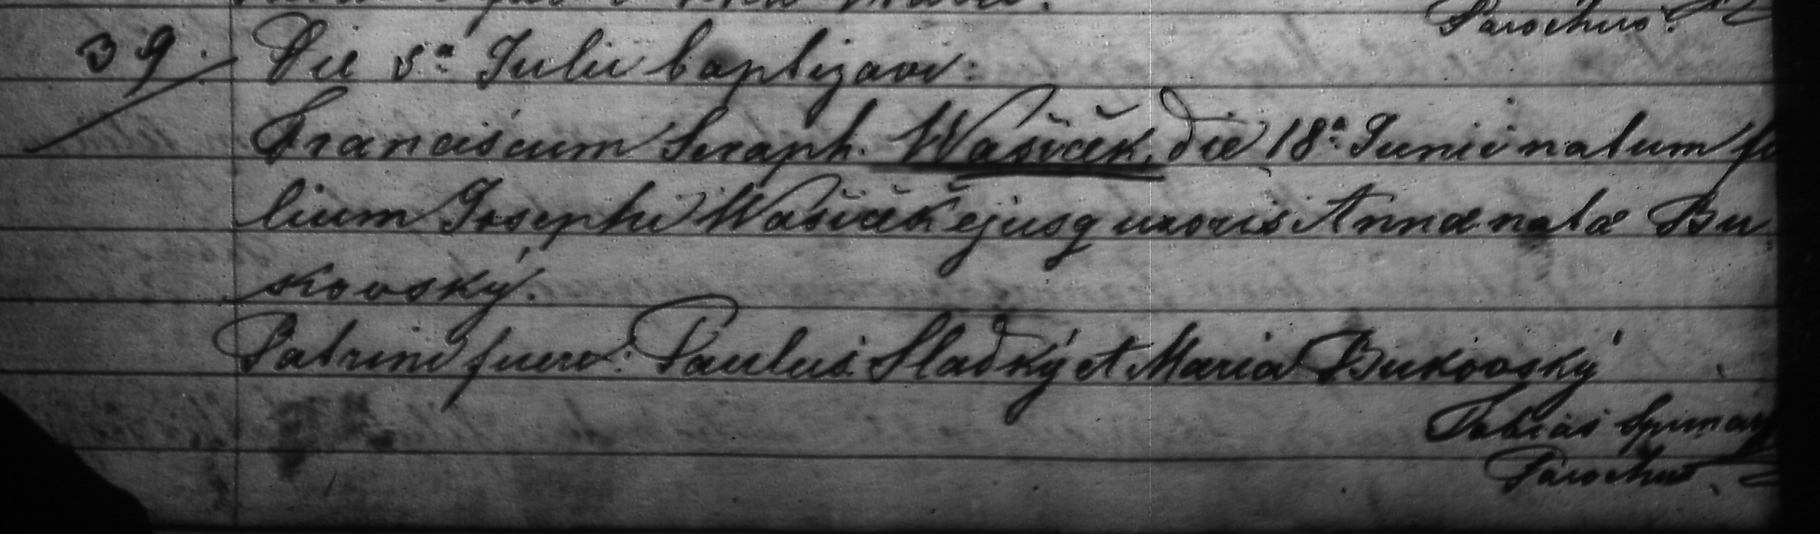 Parochus.
39. Die 5ª Julii baptizavi:
Franciscum Seraph. Wašiček, die 18ª Junii natum fi
lium Josephi Wašiček ejusq uxoris Annæ natæ Bu
kovský.
Patrini fuere: Paulus Sladký et Maria Bukovský
Tobias
Parochus.